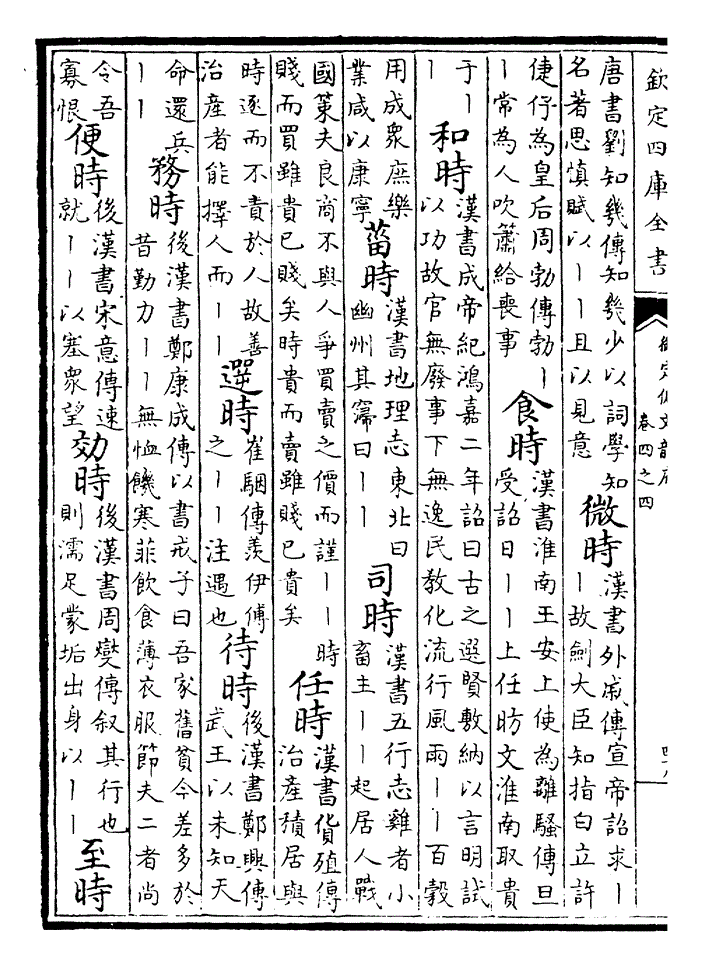 欽定四庫全書
御定佩文韻府
卷四之四
唐書劉知幾傳知幾少以詞學知
名著思慎賦以丨丨且以見意
微時
漢書外戚傳宣帝詔求丨
丨故劍大臣知指白立許
倢伃為皇后周勃傳勃丨
丨常為人吹簫給喪事
食時
漢書淮南王安上使為離騷傳旦
受詔日丨丨上任昉文淮南取貴
于丨
丨
和時
漢書成帝紀鴻嘉二年詔曰古之選賢敷納以言明試
以功故官無廢事下無逸民教化流行風雨丨丨百穀
用成眾庶樂
業咸以康寧
菑時
漢書地理志東北曰
幽州其寖曰丨丨
司時
漢書五行志雞者小
畜主丨丨起居人戰
國策夫良商不與人爭買賣之價而謹丨丨時
賤而買雖貴已賤矣時貴而賣雖賤已貴矣
任時
漢書貨殖傳
治產積居與
時逐而不責於人故善
治產者能擇人而丨丨
選時
崔駰傳羨伊傅
之丨丨注遇也
待時
後漢書鄭興傳
武王以未知天
命還兵
丨丨
務時
後漢書鄭康成傳以書戒子曰吾家舊貧今差多於
昔勤力丨丨無恤饑寒菲飲食薄衣服節夫二者尚
令吾
寡恨
便時
後漢書宋意傳速
就丨丨以塞眾望
効時
後漢書周燮傳叙其行也
則濡足蒙垢出身以丨丨
至時